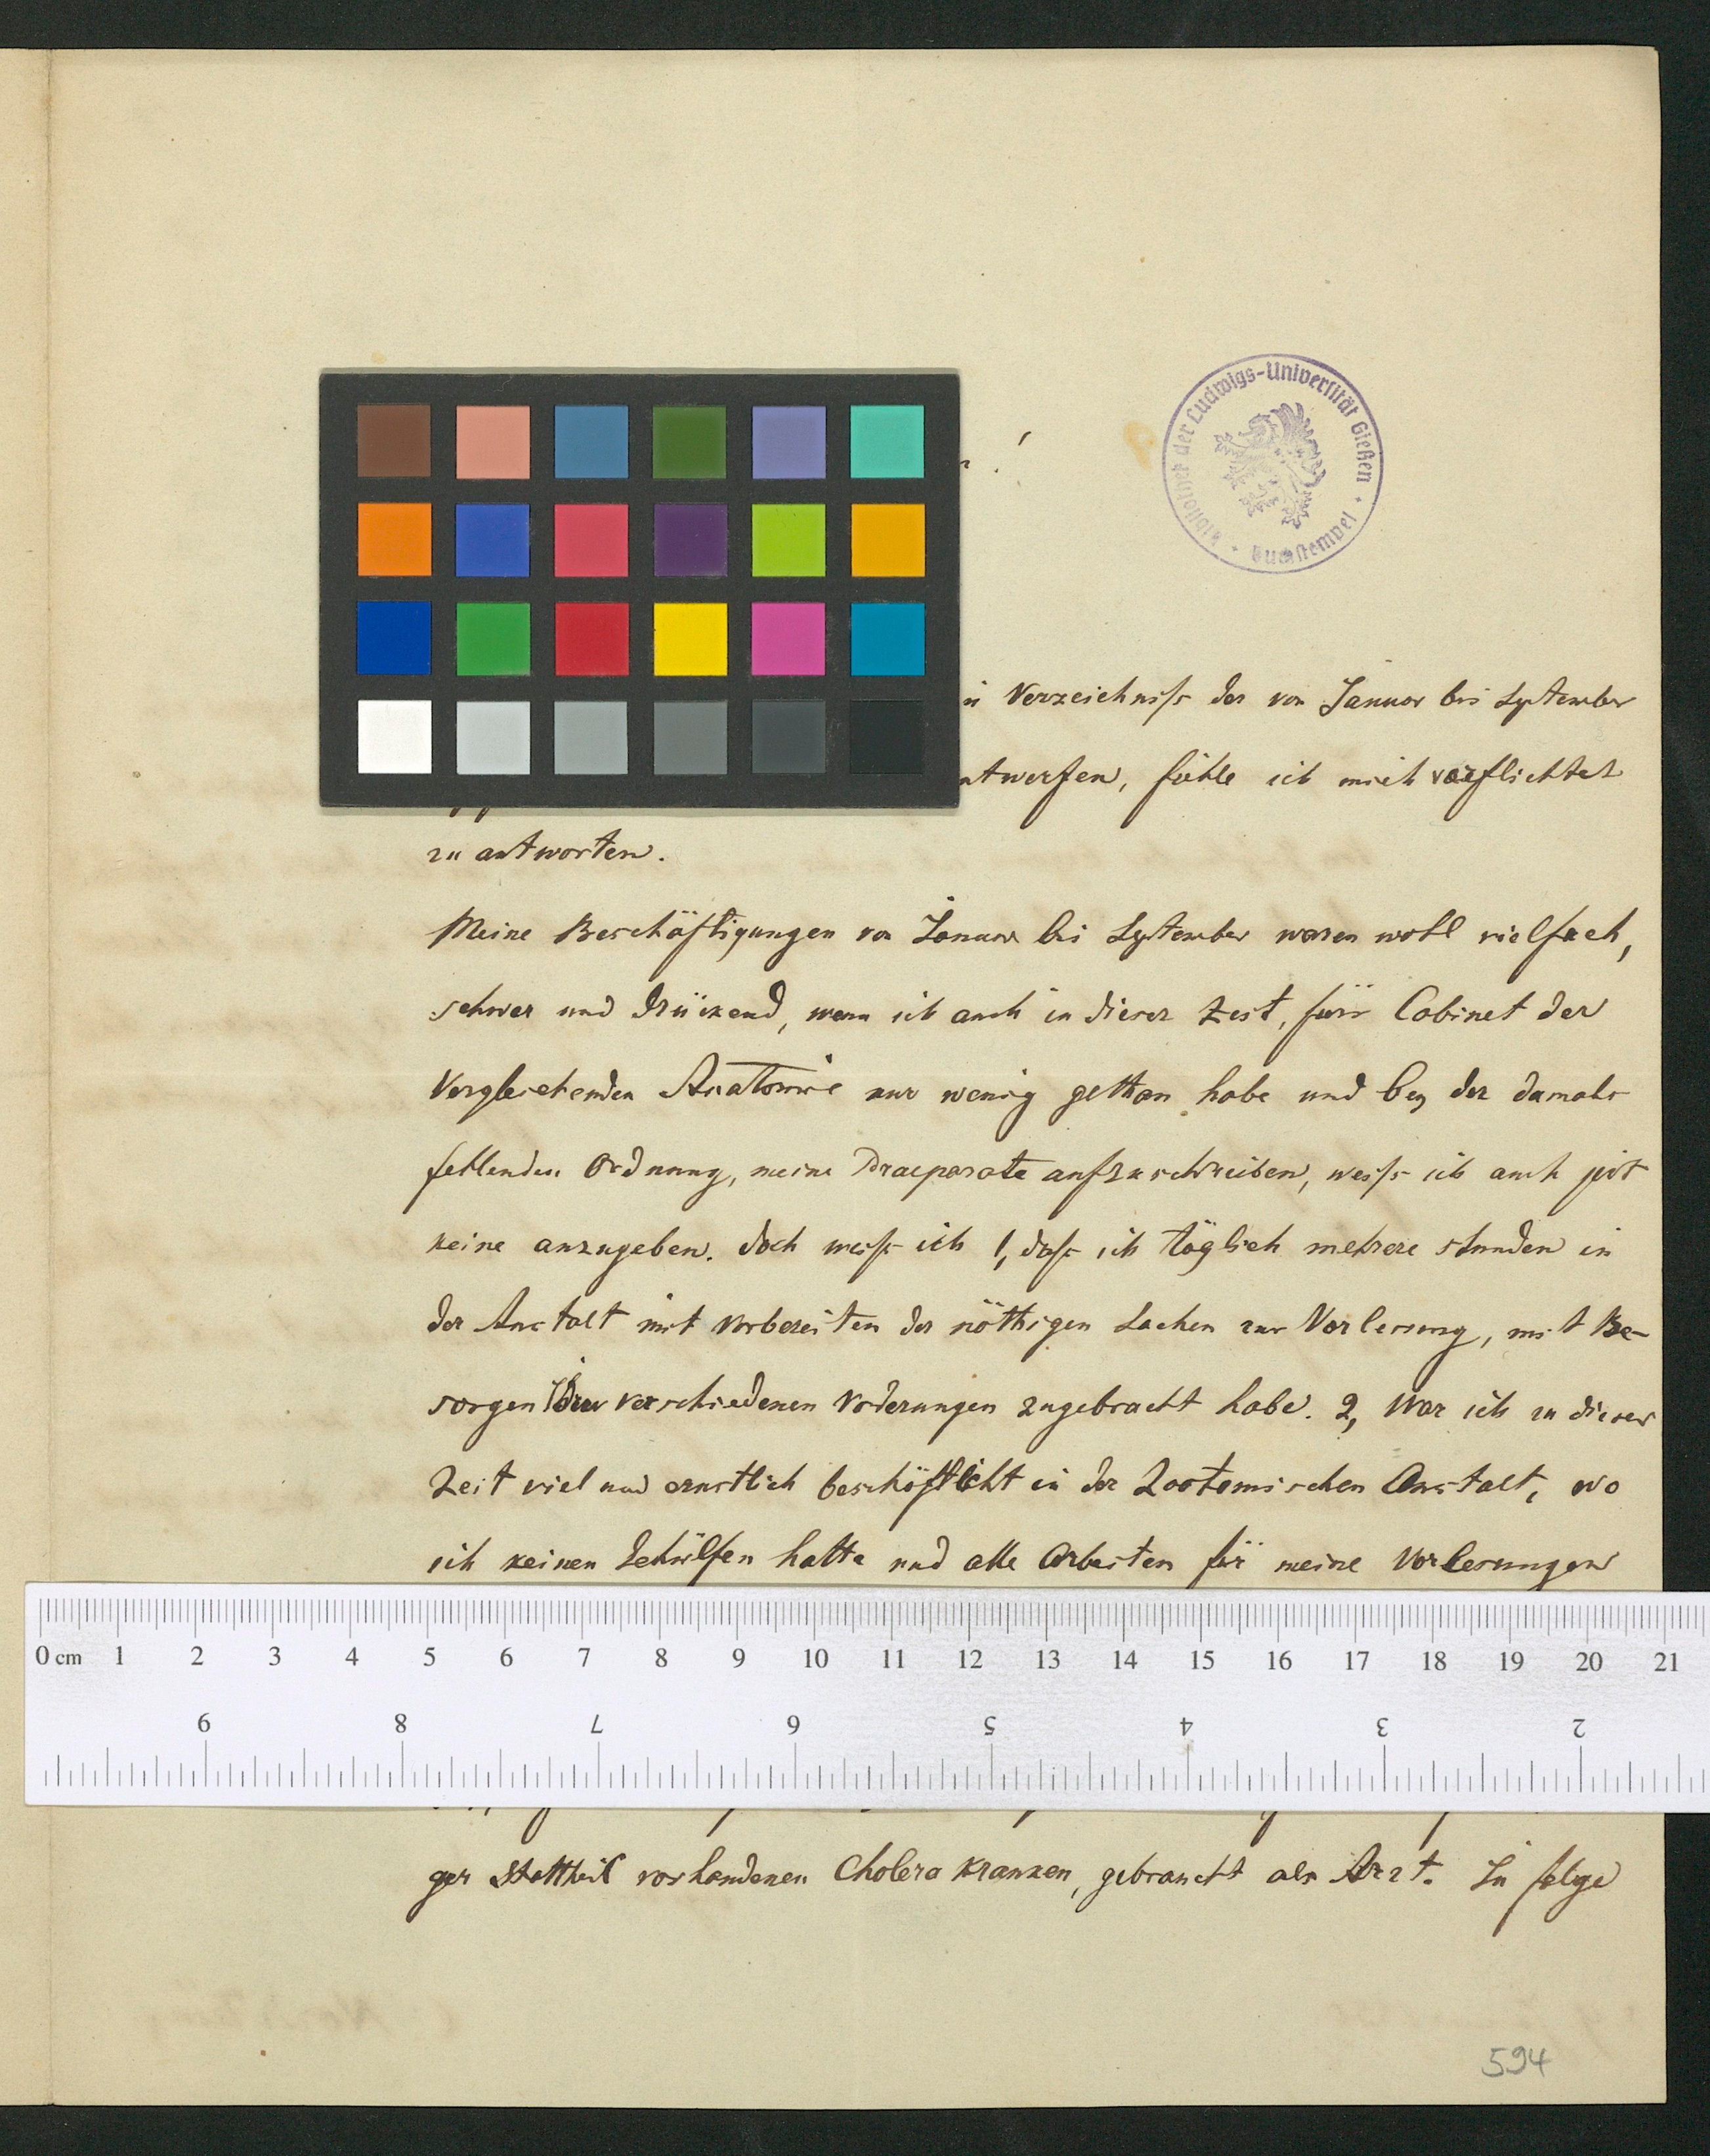 Bibliothek der Ludwigs-Universität Gießen · Buchstempel ·
Verzeichniſs der von Januar bis September
fühle ich mich verpflichtet
zu antworten.
Meine Beschäftigungen von Januar bis September waren wohl vielfach,
schwer und drükend, wenn ich auch in dieser Zeit, fürs Cabinet der
Vergleichenden Anatomie nur wenig gethan habe und bey der damals
fehlenden Ordnung, meine Praeparate aufzuschreiben, weiſs ich auch jezt
keine anzugeben. doch weiſs ich 1, daſs ich täglich mehrere stunden in
der Anstalt mit Vorbereiten der nöthigen Sachen zur Vorlesung, mit Be-
sorgen der verschiedenen Voderungen zugebracht habe. 2, War ich zu dieser
Zeit viel und ernstlich beschäftiht in der Zootomischen Anstalt, wo
ich keinen Gehülfen hatte und alle Arbeiten für meine Vorlesungen
0 cm 1 2 3 4 5 6 7 8 9 10 11 12 13 14 15 16 17 18 19 20 21
9 8 7 6 5 4 3 2
ger Stattheil vorhandenen Cholera Kranken, gebraucht als Arzt. In folge
594